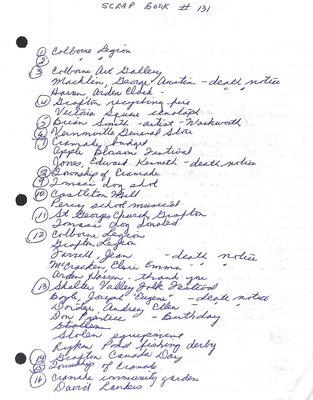 SCRAP BOOK # 131
① Colborne Legion
② "
③ Colborne Art Gallery
Macklin, George Austin - death notice
Haven Arden Clark - " "
④ Grafton recycling fire
Victoria Square cenotaph
⑤ Brian Smith - artist - Warkworth
⑥ Vernonville General Store
⑦ Cramahe budget
Apple Blossom Festival
Jones, Edward Kenneth - death notice
⑧ Township of Cramahe
⑨ dog shot
⑩ Castleton Mill
Percy school musical
⑪ St Georges Church, Grafton
dog donated
⑫ Colborne Legion
Grafton Legion
Farrell, Jean - death notice
McCracken, Elsie Emma - " "
Arden Haven - thank you
⑬ Shelter Valley Folk Festival
Doyle, Joseph "Eugene" - death notice
Dordge, Audrey Ellen
Don Prentice - Birthday
Stolen equipment
Pond fishing derby
⑭ Grafton Canada Day
⑮ Township of Cramahe
⑯ Cramahe immunity garden
David Larkin